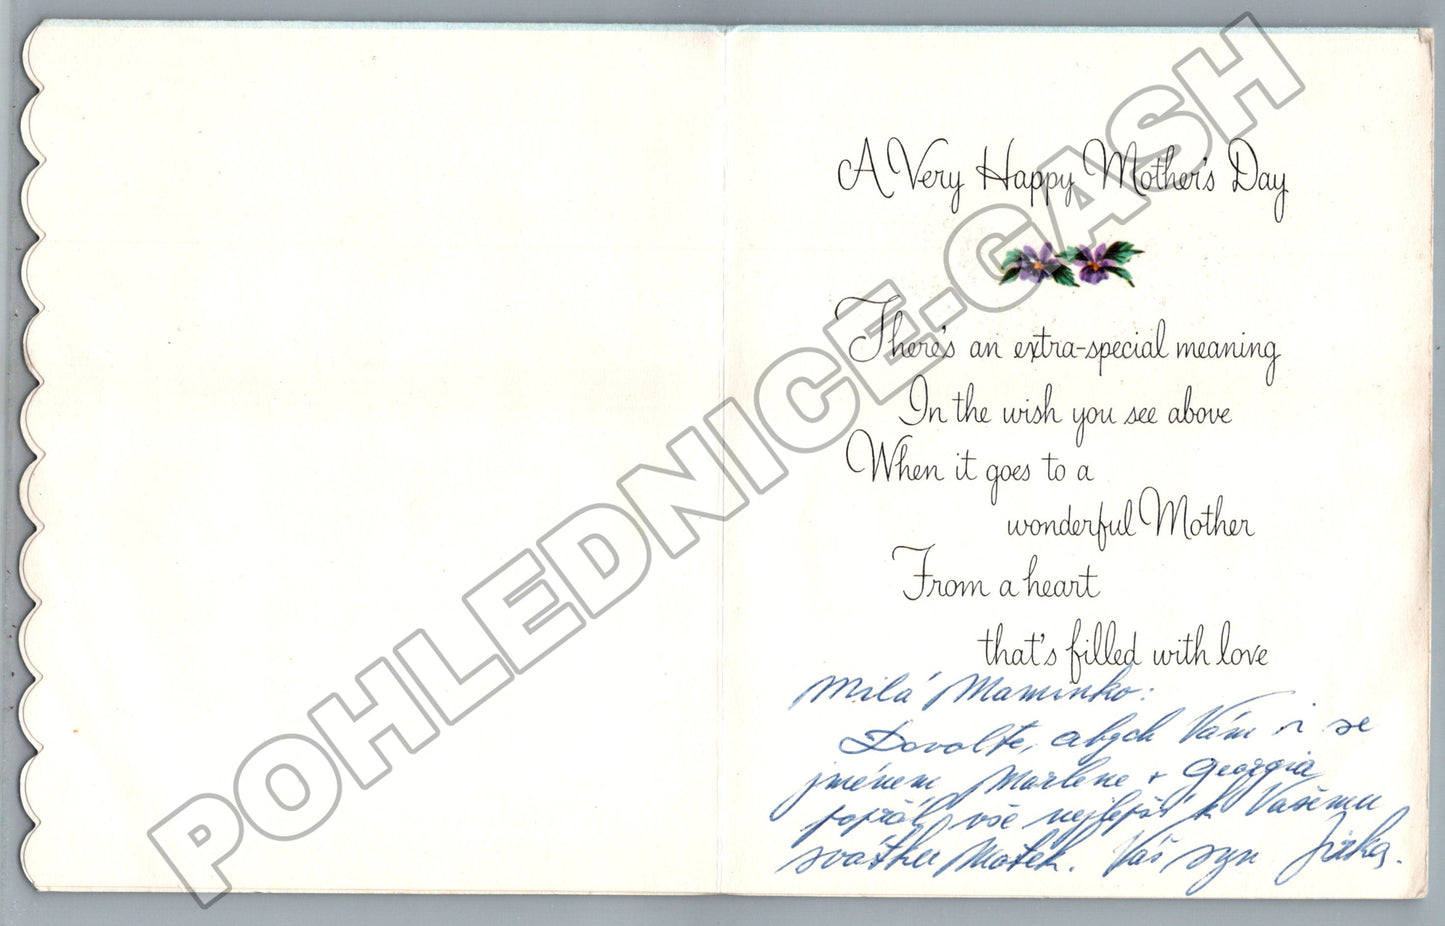 A Very Happy Mother's Day
There's an extra-special meaning
In the wish you see above
When it goes to a
wonderful Mother
From a heart
that's filled with love
Milá Maminko:
Dovolte, abych Vám i se
jménem Marlene + Georgia
popřál vše nejlepší k Vašemu
svátku Matek. Váš syn Jirka.
POHLEDNICE-GASH